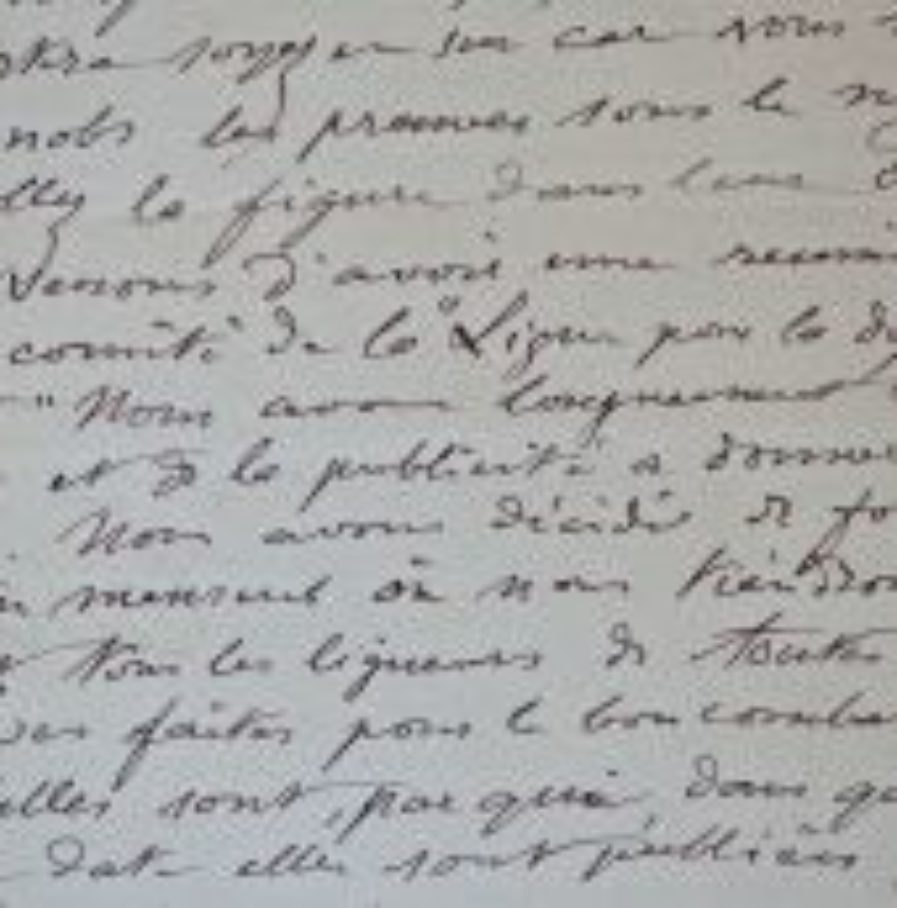 soyez en sur car vous
les preuves sous le
la figure dans leur
venons d'avoir une reuni
comité de la "Ligue pour la d
" Nous avons longuement
et de la publicité a donner
Nous avons décidé de fo
mensuel où nous tiendron
tous les ligueurs de toutes
faites pour le bon comba
elles sont, par qui, dans qu
date elles sont publiées